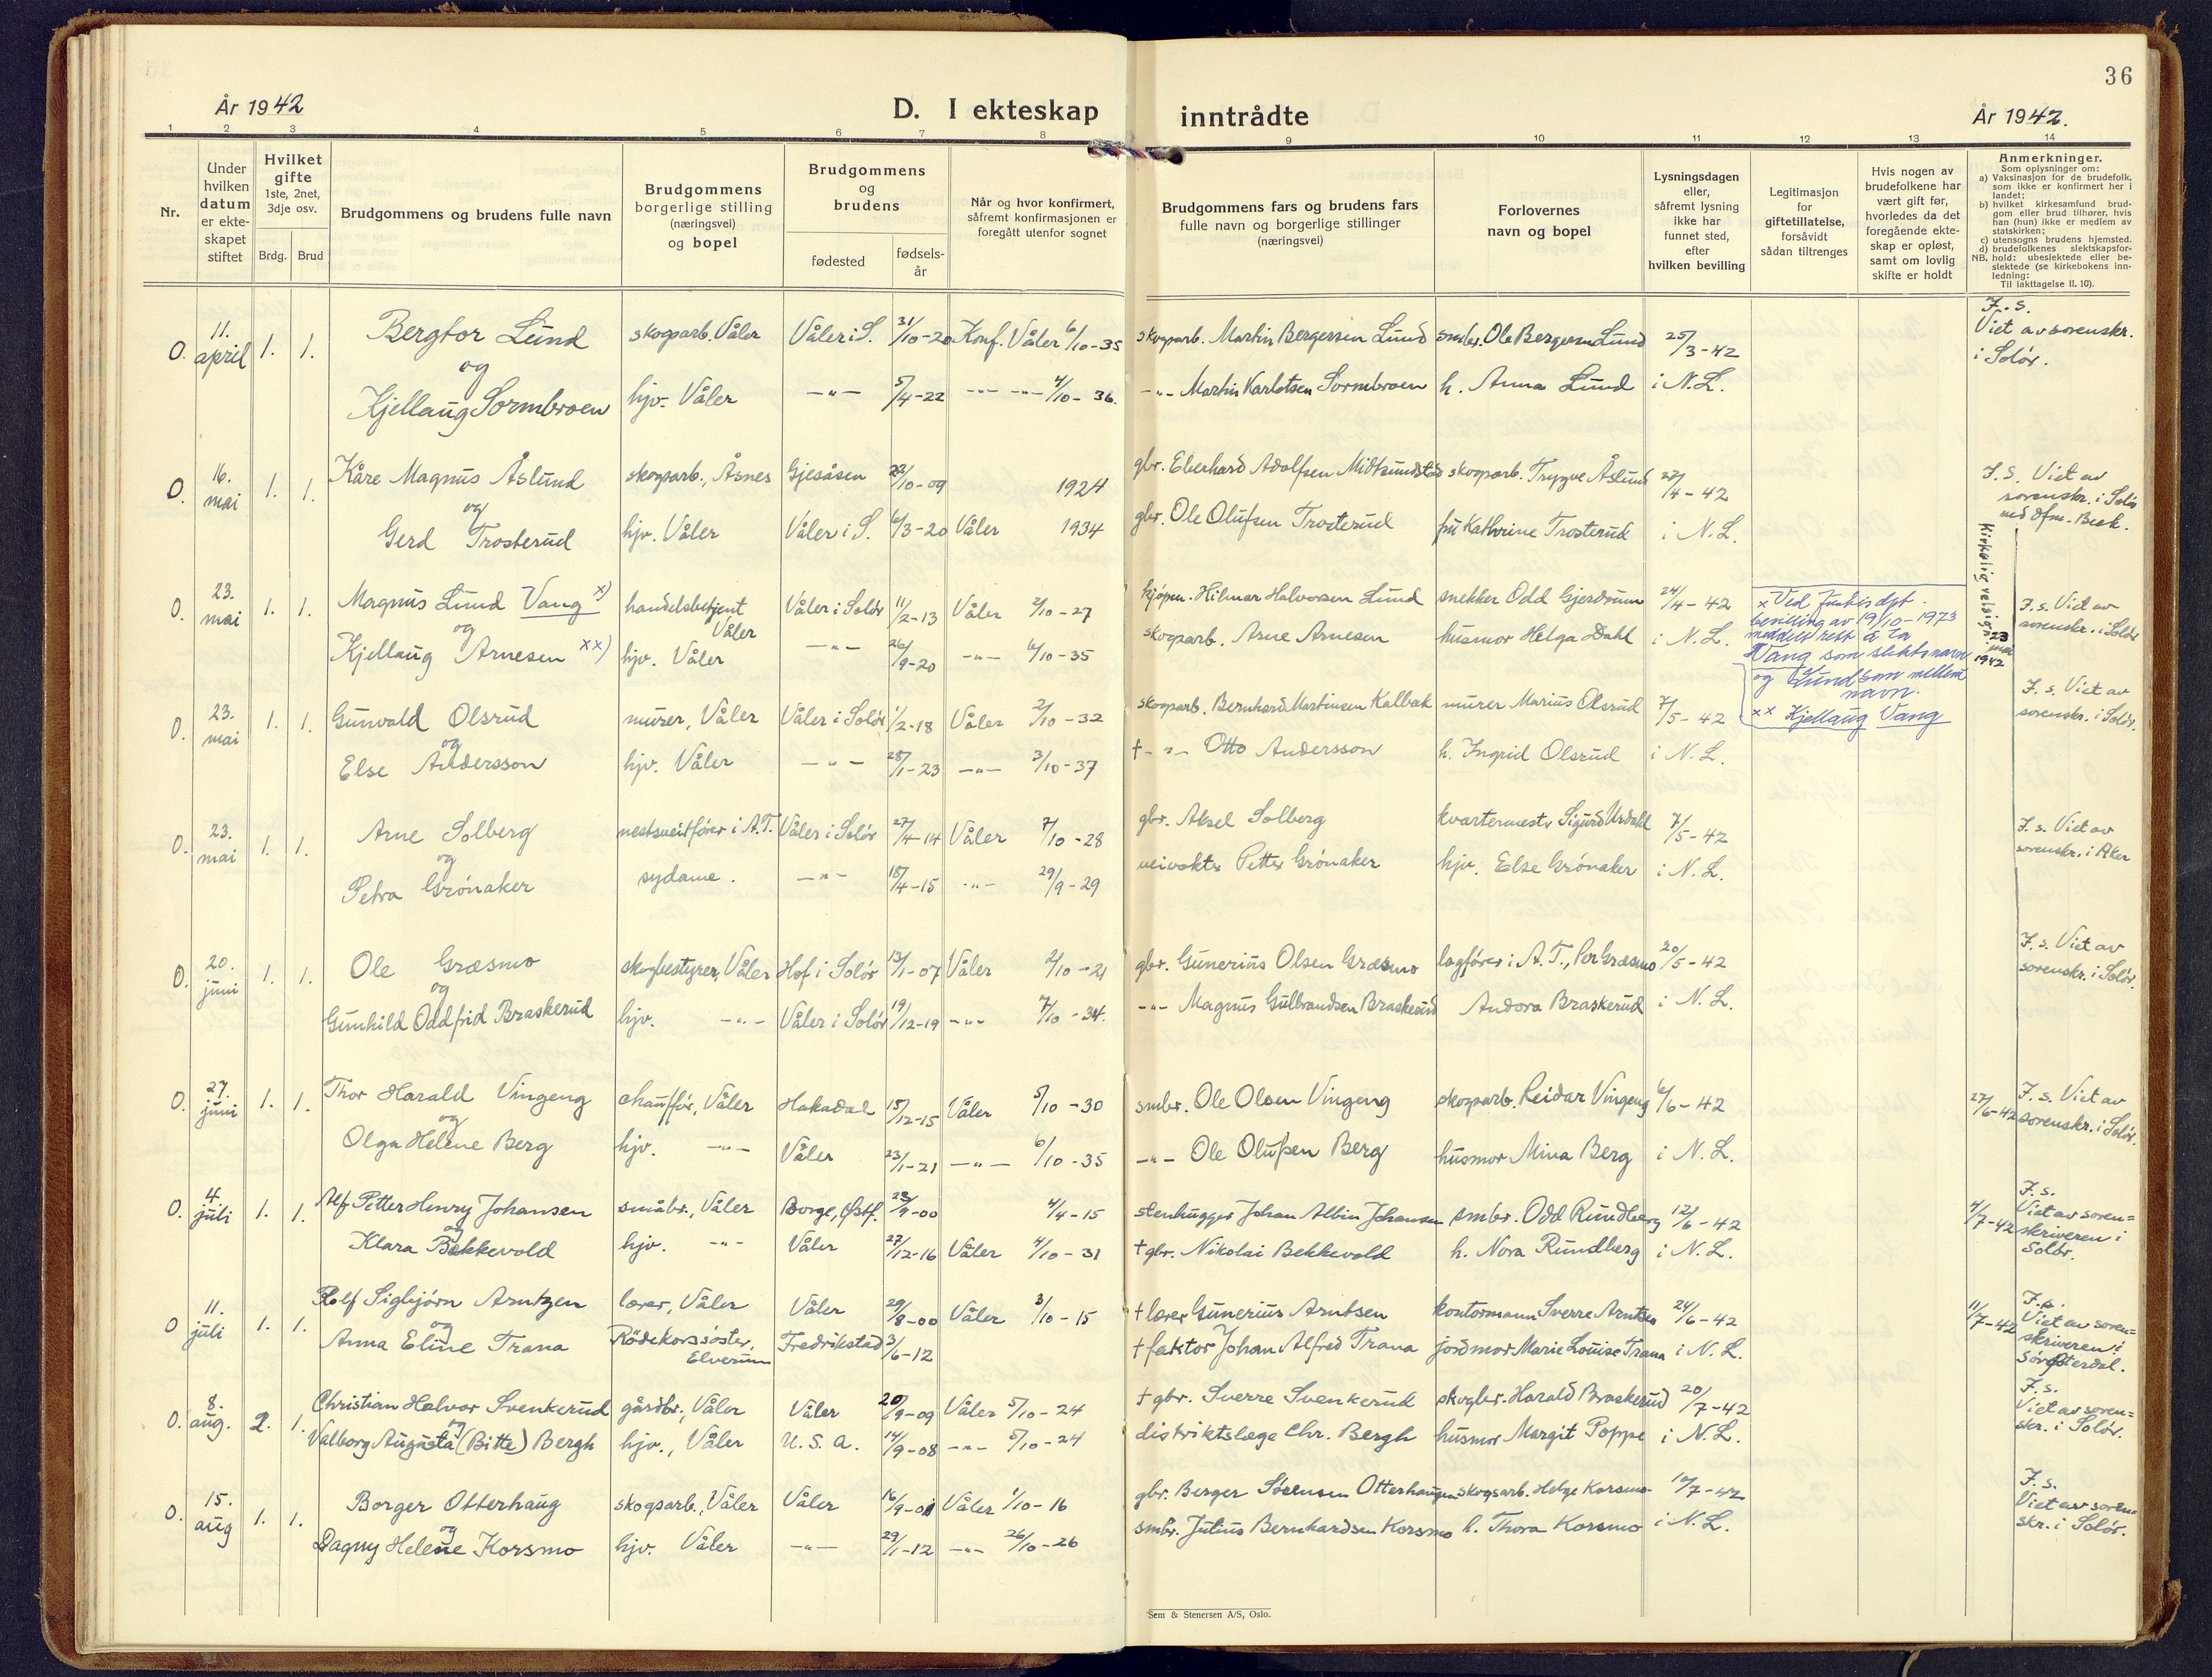 36
År 1942
D. I ekteskap inntrådte
År 1942.
1 2 3 4 5 6 7 8 9 10 11 12 13 14
Nr.
Under hvilken datum er ekte- skapet stiftet
Hvilket gifte 1ste, 2net, 3dje osv.
Brdg. Brud
Brudgommens og brudens fulle navn
Brudgommens borgerlige stilling (næringsvei) og bopel
Brudgommens og brudens
fødested
fødsels- år
Når og hvor konfirmert, såfremt konfirmasjonen er foregått utenfor sognet
Brudgommens fars og brudens fars fulle navn og borgerlige stillinger (næringsvei)
Forlovernes navn og bopel
Lysningsdagen eller, såfremt lysning ikke har funnet sted, efter hvilken bevilling
Legitimasjon for giftetillatelse, forsåvidt sådan tiltrenges
Hvis nogen av brudefolkene har vært gift før, hvorledes da det foregående ekte- skap er opløst, samt om lovlig skifte er holdt
Anmerkninger.
Som oplysninger om:
a) Vaksinasjon for de brudefolk, som ikke er konfirmert her i landet;
b) hvilket kirkesamfund brud- gom eller brud tilhører, hvis han (hun) ikke er medlem av statskirken;
c) utensogns brudens hjemsted.
d) brudefolkenes slektskapsfor-
NB. hold: ubeslektede eller be- slektede (se kirkebokens inn- ledning:
Til iakttagelse II, 10).
O. 11. april 1. 1. Bergtor Lund skogsarb. Våler Våler i S. 31/10-20 Konf. Våler 6/10-35 skogsarb. Martin Bergersen Lund smbr. Ole Bergersen Lund 25/3-42 F.s. Viet av sorenskr. i Solør.
og
Kjellaug Sormbroen hjv. Våler -"- 5/4-22 -"- -"- 4/10-36. -"- Martin Karlotsen Sormbroen h. Anna Lund i N.L.
O. 16. mai 1. 1. Kåre Magnus Åslund skogsarb., Åsnes Gjesåsen 22/10-09 1924 gbr. Eberhard Adolfsen Midtsundstad skogsarb. Trygve Åslund 27/4-42 F.S. Viet av sorenskr. i Solør
og
Gerd Trosterud hjv. Våler Våler i S. 6/3-20 Våler 1934 gbr. Ole Olufsen Trosterud fru Kathrine Trosterud i N.L.
O. 23. mai 1. 1. Magnus Lund Vang x) handelsbetjent Våler Våler i Solør 11/2-13 Våler 2/10-27 kjøpm. Hilmar Halvorsen Lund snekker Odd Gjerdrum 24/4-42 Kirkelig velsign. 23 mai 1942 F.s. Viet av sorenskr. i Solør
og
Kjellaug Arnesen xx) hjv. Våler -"- 26/9-20 -"- 6/10-35 skogsarb. Arne Arnesen husmor Helga Dahl i N.L.
x Ved Justisdpt.
bevilling av 19/10-1973
meddelt rett å ta
Vang som slektsnavn
og Lund som mellom
navn.
xx Kjellaug Vang
O. 23. mai 1. 1. Gunvald Olsrud murer, Våler Våler i Solør 1/2-18 Våler 2/10-32 skogsarb. Bernhard Martinsen Kalbak murer Marius Olsrud 7/5-42 F.s. Viet av sorenskr. i Solør.
og
Else Andersson hjv. Våler -"- 28/1-23 -"- 3/10-37 †-"- Otto Andersson h. Ingrid Olsrud i N.L.
O. 23. mai 1. 1. Arne Solberg nestsveitfører i A.T. Våler i Solør 27/4-14 Våler 7/10-28 gbr. Aksel Solberg kvartermestr Sigurd Urdahl 7/5-42 F.s. Viet av sorenskr. i Aker
og
Petra Grønaker sydame. -"- 18/4-15 -"- 29/9-29 veivokter Petter Grønaker hjv. Else Grønaker i N.L.
O. 20. juni 1. 1. Ole Græsmo skogbestyrer, Våler Hof i Solør 13/1-07 Våler 2/10-21 gbr. Gunerius Olsen Græsmo lagfører i A.T., Per Græsmo 20/5-42 F.s. Viet av sorenskr. i Solør.
og
Gunhild Oddfrid Braskerud hjv. -"- Våler i Solør 19/12-19 -"- 7/10-34. -"- Magnus Gulbrandsen Braskerud Andora Braskerud i N.L.
O. 27. juni 1. 1. Thor Harald Vingeng chauffør, Våler Hakadal 15/12-15 Våler 5/10-30 smbr. Ole Olsen Vingeng skogsarb. Reidar Vingeng 6/6-42 27/6-42 F.s. Viet av sorenskr. i Solør.
og
Olga Helene Berg hjv. -"- Våler 23/1-21 -"- 6/10-35 -"- Ole Olufsen Berg husmor Mina Berg i N.L.
O. 4. juli 1. 1. Alf Petter Henry Johansen småbr., Våler Borge, Østf. 28/9-00 4/4-15 stenhugger Johan Albin Johansen smbr. Odd Rundberg 12/6-42 4/7-42 F.s. Viet av soren= skriveren i Solør.
og
Klara Bekkevold hjv. -"- Våler 27/12-16 Våler 4/10-31 † gbr. Nikolai Bekkevold h. Nora Rundberg i N.L.
O 11. juli 1. 1. Rolf Sigbjørn Arntzen lærer, Våler Våler 29/8-00 Våler 3/10-15 † lærer Gunerius Arntsen kontormann Sverre Arntsen 24/6-42 11/7-42 F.s. Viet av soren= skriveren i Sørøsterdal.
og
Anna Eline Trana Rödekorssøster, Elverum Fredrikstad 3/6-12 † faktor Johan Alfred Trana jordmor Marie Louise Trana i N.L.
O. 8. aug. 2. 1. Christian Halvor Svenkerud gårdbr., Våler Våler 20/9-09 Våler 5/10-24 † gbr. Sverre Svenkerud skogbr. Harald Braskerud 20/7-42 F.s. Viet av soren= skr. i Solør.
og
Valborg Augusta (Bitte) Bergh hjv., Våler U.S.A. 14/9-08 -"- 5/10-24 distriktslæge Chr. Bergh husmor Margit Poppe i N.L.
O. 15. aug 1. 1. Borger Otterhaug skogsarb., Våler Våler 16/9-01 Våler 1/10-16 gbr. Berger Sørensen Otterhaugen skogsarb. Helge Korsmo 10/7-42 F.s. Viet av soren= skr. i Solør.
og
Dagny Helene Korsmo hjv. Våler -"- 29/1-12 -"- 26/10-26 smbr. Julius Bernhardsen Korsmo h. Thora Korsmo i N.L.
Sem & Stenersen A/S, Oslo.